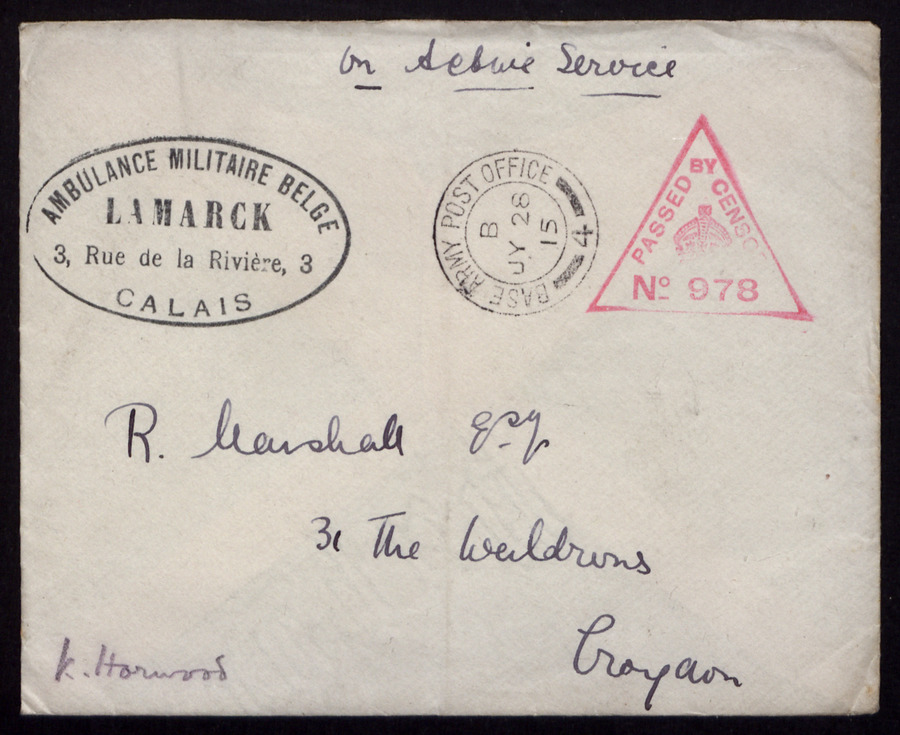 On Active Service
AMBULANCE MILITAIRE BELGE
LAMARCK
3, Rue de la Rivière, 3
CALAIS
BASE ARMY POST OFFICE 4
B
JY 28
15
PASSED BY CENSO
No 978
R. Marshall Esq.
31 The Waldrons
Croydon
K. Horwood